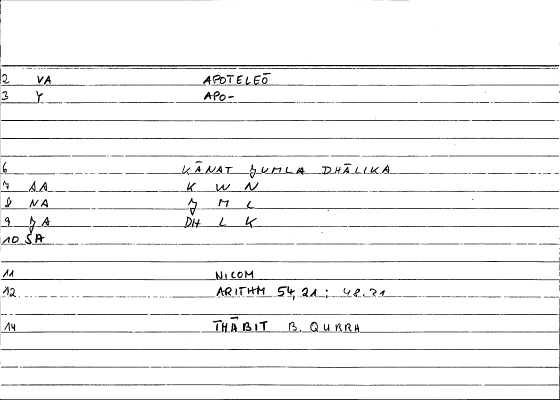 2 VA APOTELEŌ
3 Y APO-
6 KĀNAT ȜUMLA DHĀLIKA
7 AA K W N
8 NA Ȝ M L
9 ȜA DH L K
10 SA
11 NICOM
12 ARITHM 54,21 : 48.21
14 THĀBIT B. QURRA